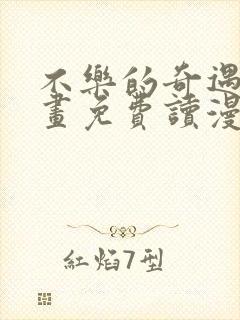 不樂的奇遇
畫免費讀漫
紅焰7型